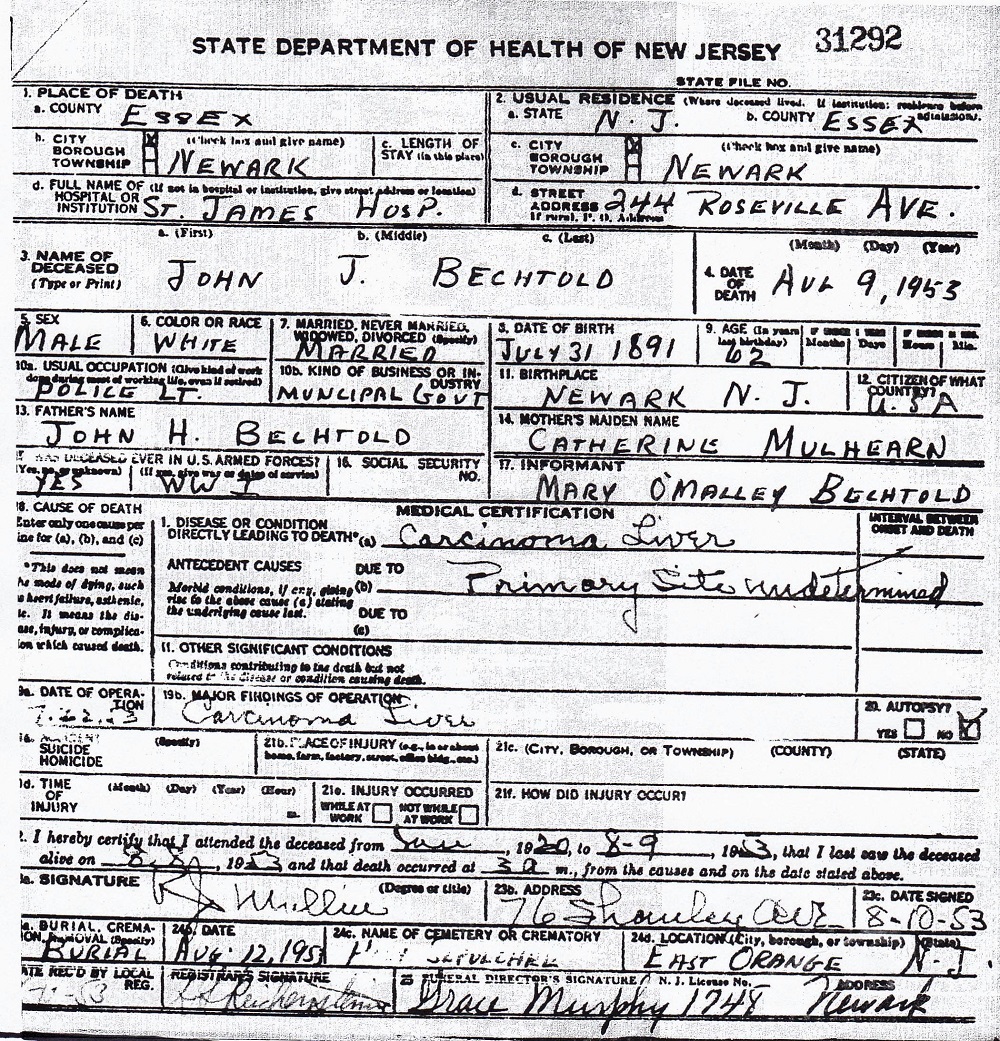 STATE DEPARTMENT OF HEALTH OF NEW JERSEY 31292
STATE FILE NO.
1. PLACE OF DEATH
a. COUNTY ESSEX
2. USUAL RESIDENCE (Where deceased lived. If institution: residence before admission).
a. STATE N. J. b. COUNTY ESSEX
b. CITY BOROUGH TOWNSHIP (Check box and give name) NEWARK
c. LENGTH OF STAY (in this place)
c. CITY BOROUGH TOWNSHIP (Check box and give name) NEWARK
d. FULL NAME OF HOSPITAL OR INSTITUTION (If not in hospital or institution, give street address or location) ST. JAMES HOSP.
d. STREET ADDRESS 244 ROSEVILLE AVE.
If rural, P. O. Address
3. NAME OF DECEASED (Type or Print)
a. (First) b. (Middle) c. (Last)
JOHN J. BECHTOLD
4. DATE OF DEATH (Month) (Day) (Year)
AUG 9, 1953
5. SEX MALE
6. COLOR OR RACE WHITE
7. MARRIED, NEVER MARRIED, WIDOWED, DIVORCED (Specify) MARRIED
8. DATE OF BIRTH JULY 31 1891
9. AGE (In years last birthday) 62
IF UNDER 1 YEAR Months Days
Hours Min.
10a. USUAL OCCUPATION (Give kind of work done during most of working life, even if retired) POLICE LT.
10b. KIND OF BUSINESS OR INDUSTRY MUNCIPAL GOVT
11. BIRTHPLACE NEWARK N. J.
12. CITIZEN OF WHAT COUNTRY? U.S.A
13. FATHER'S NAME
JOHN H. BECHTOLD
14. MOTHER'S MAIDEN NAME
CATHERINE MULHEARN
WAS DECEASED EVER IN U.S. ARMED FORCES?
(Yes, no, or unknown) (If yes, give war or dates of service)
YES WW I
16. SOCIAL SECURITY NO.
17. INFORMANT
MARY O'MALLEY BECHTOLD
18. CAUSE OF DEATH
Enter only one cause per line for (a), (b), and (c)
*This does not mean the mode of dying, such as heart failure, asthenic, etc. It means the disease, injury, or complication which caused death.
MEDICAL CERTIFICATION
INTERVAL BETWEEN ONSET AND DEATH
1. DISEASE OR CONDITION DIRECTLY LEADING TO DEATH* (a) Carcinoma Liver
ANTECEDENT CAUSES DUE TO
Morbid conditions, if any, giving rise to the above cause (a) stating the underlying cause last. (b) Primary Site undetermined
DUE TO
(c)
11. OTHER SIGNIFICANT CONDITIONS
Conditions contributing to the death but not related to the disease or condition causing death.
19a. DATE OF OPERATION
19b. MAJOR FINDINGS OF OPERATION
Carcinoma Liver
20. AUTOPSY?
YES NO
SUICIDE
HOMICIDE
(Specify)
21b. PLACE OF INJURY (e.g., in or about home, farm, factory, street, office bldg., etc.)
21c. (CITY, BOROUGH, OR TOWNSHIP) (COUNTY) (STATE)
1d. TIME OF INJURY (Month) (Day) (Year) (Hour) m.
21e. INJURY OCCURRED
WHILE AT WORK NOT WHILE AT WORK
21f. HOW DID INJURY OCCUR?
2. I hereby certify that I attended the deceased from June, 1920, to 8-9, 1953, that I last saw the deceased
alive on 8-8, 1953 and that death occurred at 3 a m., from the causes and on the date stated above.
SIGNATURE (Degree or title)
23b. ADDRESS
76 Ave
23c. DATE SIGNED
8-10-53
BURIAL, CREMATION, REMOVAL (Specify)
BURIAL
24b. DATE
AUG. 12, 195
24c. NAME OF CEMETERY OR CREMATORY
SEPULCHER
24d. LOCATION (City, borough, or township) (State)
EAST ORANGE N-J.
DATE REC'D BY LOCAL REG.
REGISTRAR'S SIGNATURE
25 FUNERAL DIRECTOR'S SIGNATURE N. J. License No. ADDRESS
Grace Murphy 1748 Newark